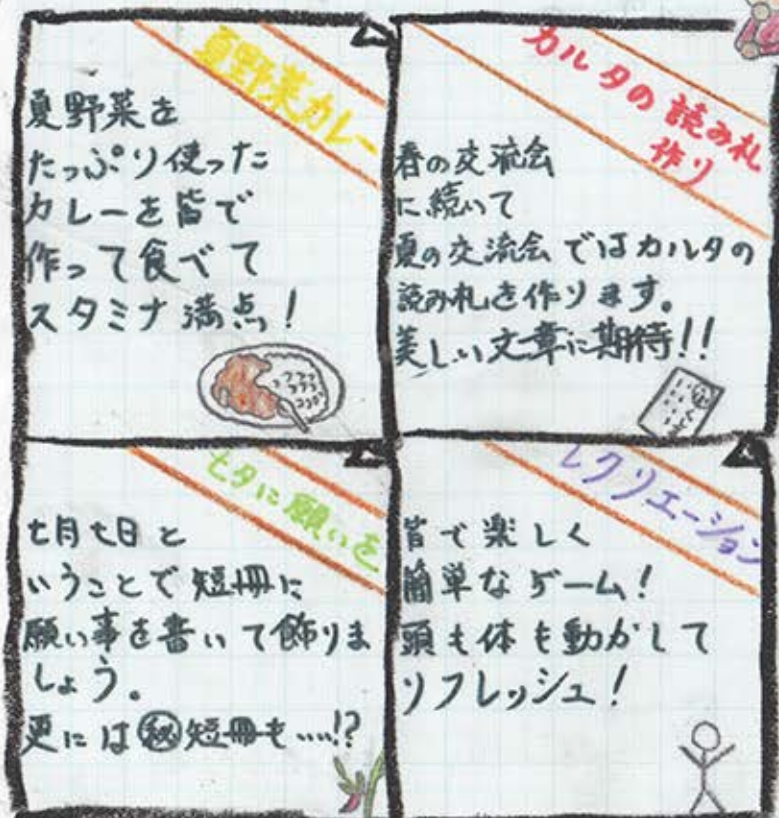 夏野菜カレー
夏野菜を
たっぷり使った
カレーを皆で
作って食べて
スタミナ満点!
カルタの読み札
作り
春の交流会
に続いて
夏の交流会ではカルタの
読み札を作ります。
美しい文章に期待!!
七夕に願いを
七月七日と
いうことで短冊に
願い事を書いて飾りま
しょう。
更には㊙短冊も……!?
レクリエーション
皆で楽しく
簡単なゲーム!
頭も体も動かして
リフレッシュ!